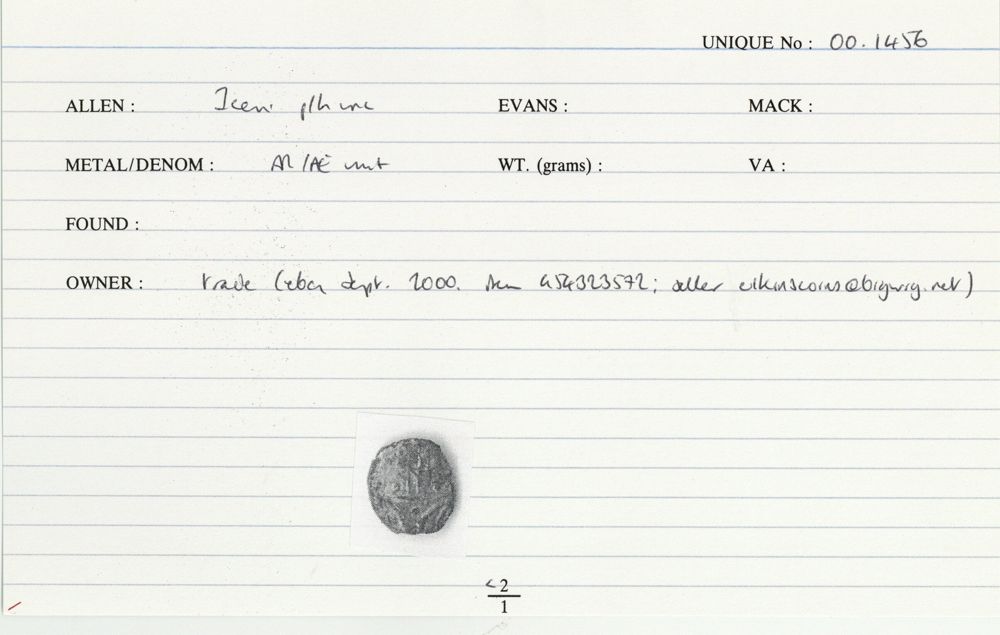 UNIQUE No : 00.1456
ALLEN : Iceni EVANS : MACK :
METAL/DENOM : AR/AE unit WT. (grams) : VA :
FOUND :
OWNER : trade (ebay Sept. 2000. Item 454323572; seller elkinscoins@bigwig.net)
<2
1